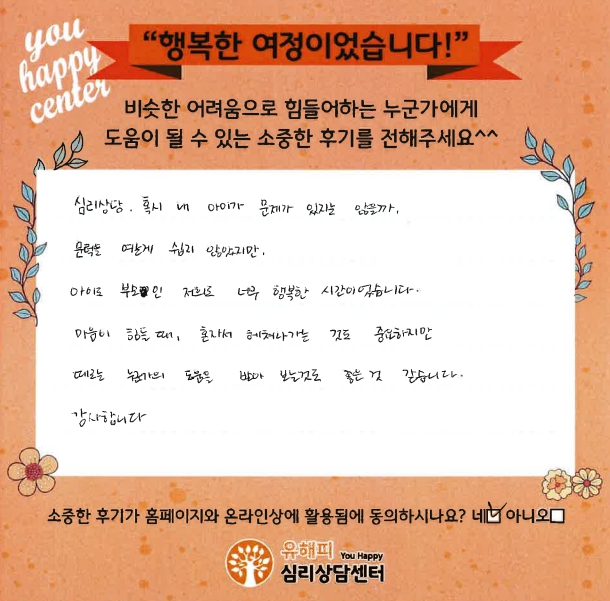 you
happy
center
“행복한 여정이었습니다!”
비슷한 어려움으로 힘들어하는 누군가에게
도움이 될 수 있는 소중한 후기를 전해주세요^^
심리상담. 혹시 내 아이가 문제가 있지는 않을까.
문턱는 여는게 쉽지 않았지만.
아이도 부모인 저희도 너무 행복한 시간이었습니다.
마음이 힘들 때, 혼자서 헤쳐나가는 것도 중요하지만
때로는 누군가의 도움을 받아 보는것도 좋은 것 같습니다.
감사합니다
소중한 후기가 홈페이지와 온라인상에 활용됨에 동의하시나요? 네☑ 아니오□
유해피 You Happy
심리상담센터